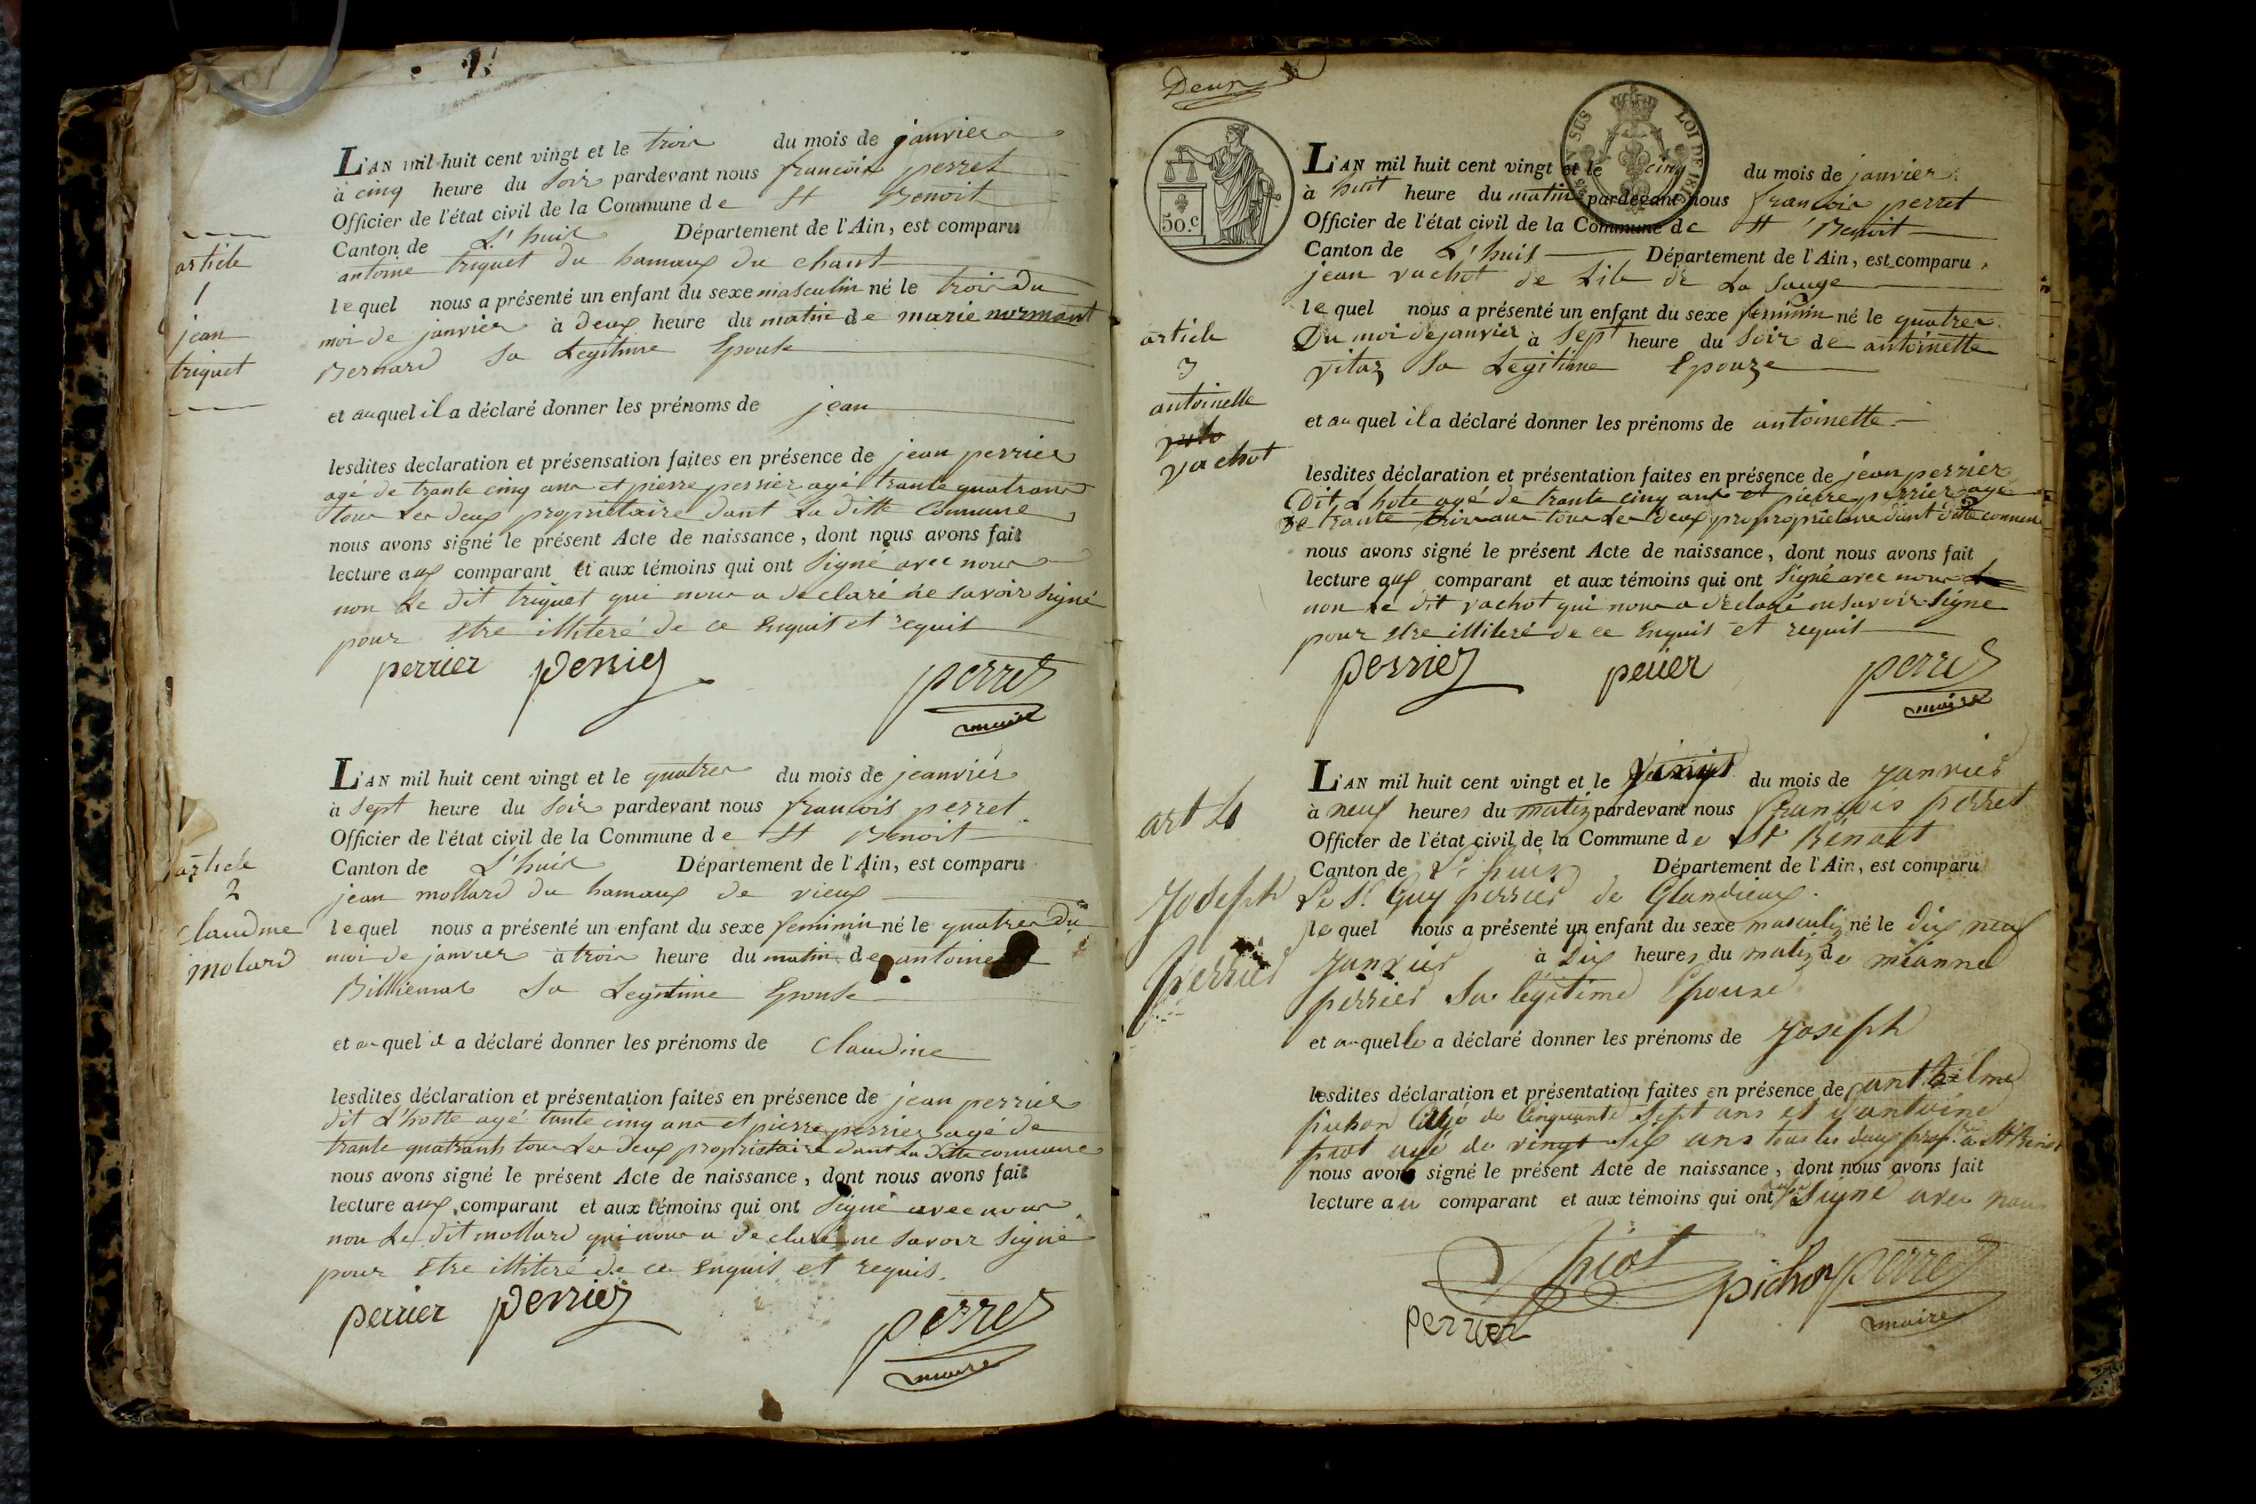 article
1
jean
triquet
L'AN mil huit cent vingt et le trois du mois de janvier
à cinq heure du soir pardevant nous francois perret
Officier de l'état civil de la Commune de St Benoit
Canton de L'huis Département de l'Ain, est comparu
antoine triquet du hamaux du chant
lequel nous a présenté un enfant du sexe masculin né le trois du
moi de janvier à deux heure du matin de marie normant
Bernard sa Legitime Epouse
et auquel il a déclaré donner les prénoms de jean
lesdites declaration et présensation faites en présence de jean perrier
agé de trante cinq ans et pierre perrier agé trante quatrans
tous Les deux propriétaire dant La ditte Commune
nous avons signé le présent Acte de naissance, dont nous avons fait
lecture aux comparant et aux témoins qui ont signé avec nous
non Le dit triquet qui nous a declaré ne savoir signé
pour Etre illiteré de ce Enquit et requit
perrier perrier perret
maire
article
2
Claudine
molard
L'AN mil huit cent vingt et le quatre du mois de jeanvier
à sept heure du soir pardevant nous francois perret
Officier de l'état civil de la Commune de St Benoit
Canton de L'huis Département de l'Ain, est comparu
jean mollard du hamaux de vieux
lequel nous a présenté un enfant du sexe feminin né le quatre du
moi de janvier à trois heure du matin de antoine
sa Legitime Epouse
et auquel il a déclaré donner les prénoms de Claudine
lesdites déclaration et présentation faites en présence de jean perrier
dit L'hotte agé trante cinq ans et pierre perrier agé de
trante quatrants tous Les deux propriétaire dant La ditte commune
nous avons signé le présent Acte de naissance, dont nous avons fait
lecture aux comparant et aux témoins qui ont signé avec nous
non Le dit mollard qui nous a declaré ne savoir signé
pour Etre illiteré de ce Enquit et requis.
perrier perrier perret
maire
Deux
50.c
LOI DE 181
article
3
antoinette
vachot
L'AN mil huit cent vingt et le cinq du mois de janvier
à huit heure du matin pardevant nous francois perret
Officier de l'état civil de la Commune de St Benoit
Canton de L'huis Département de l'Ain, est comparu
jean vachot de Lile de La Sauge
lequel nous a présenté un enfant du sexe feminin né le quatre
Du moi de janvier à sept heure du soir de antoinette
vitoz sa Legitime Epouze
et auquel il a déclaré donner les prénoms de antoinette
lesdites déclaration et présentation faites en présence de jean perrier
dit L'hote agé de trante cinq ans et pierre perrier agé
de trante trois ans tous Les deux propropriétaire dant ditte commune
nous avons signé le présent Acte de naissance, dont nous avons fait
lecture aux comparant et aux témoins qui ont signé avec nous
non Le dit vachot qui nous a declaré ne savoir signe
pour Etre illiteré de ce Enquis et requit
perrier perrier perret
maire
art 4
Joseph
perrier
L'AN mil huit cent vingt et le vingt du mois de Janvier
à neuf heures du matin pardevant nous françois perret
Officier de l'état civil de la Commune de St Bénoit
Canton de L'huis Département de l'Ain, est comparu
Le Sr Guy perrier de Glandieux.
lequel nous a présenté un enfant du sexe masculin né le dix neuf
Janvier à Dix heures du matin de méanne
perrier sa légitime Epouse
et auquel le a déclaré donner les prénoms de Joseph
lesdites déclaration et présentation faites en présence de anthelme
pichon agé de cinquante sept ans et d'antoine
piot agé de vingt six ans tous les deux propres a St Benoit
nous avons signé le présent Acte de naissance, dont nous avons fait
lecture au comparant et aux témoins qui ont signé avec nous
piot pichon perret
maire
perrier